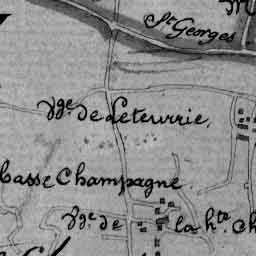 St. Georges
Vge. de Leteurrie,
basse Champagne
Vge. de la hte. Ch